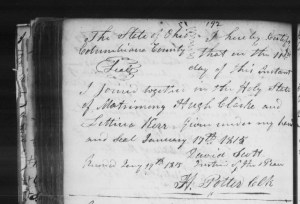 192
The State of Ohio I hereby Certify
Columbiana County that on the
Scott day of this Instant
I Joined together on the Holy State
of Matrimony Hugh Clarke and
Lettitia Kerr. Given under my hand
and Seal January 17th 1815
David Scott
Received Jany 19th 1815 Justice of the Peace
H. Potter Clk